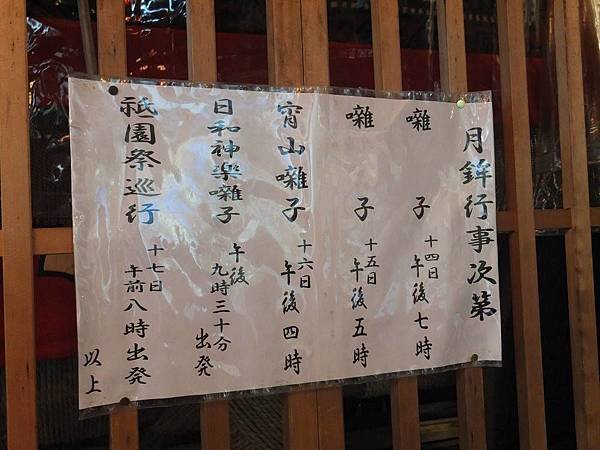 月鉾行事次第
囃子 十四日 午後七時
囃子 十五日 午後五時
宵山囃子 十六日 午後四時
日和神樂囃子 午後 九時三十分 出発
祇園祭巡行 十七日 午前八時出発
以上